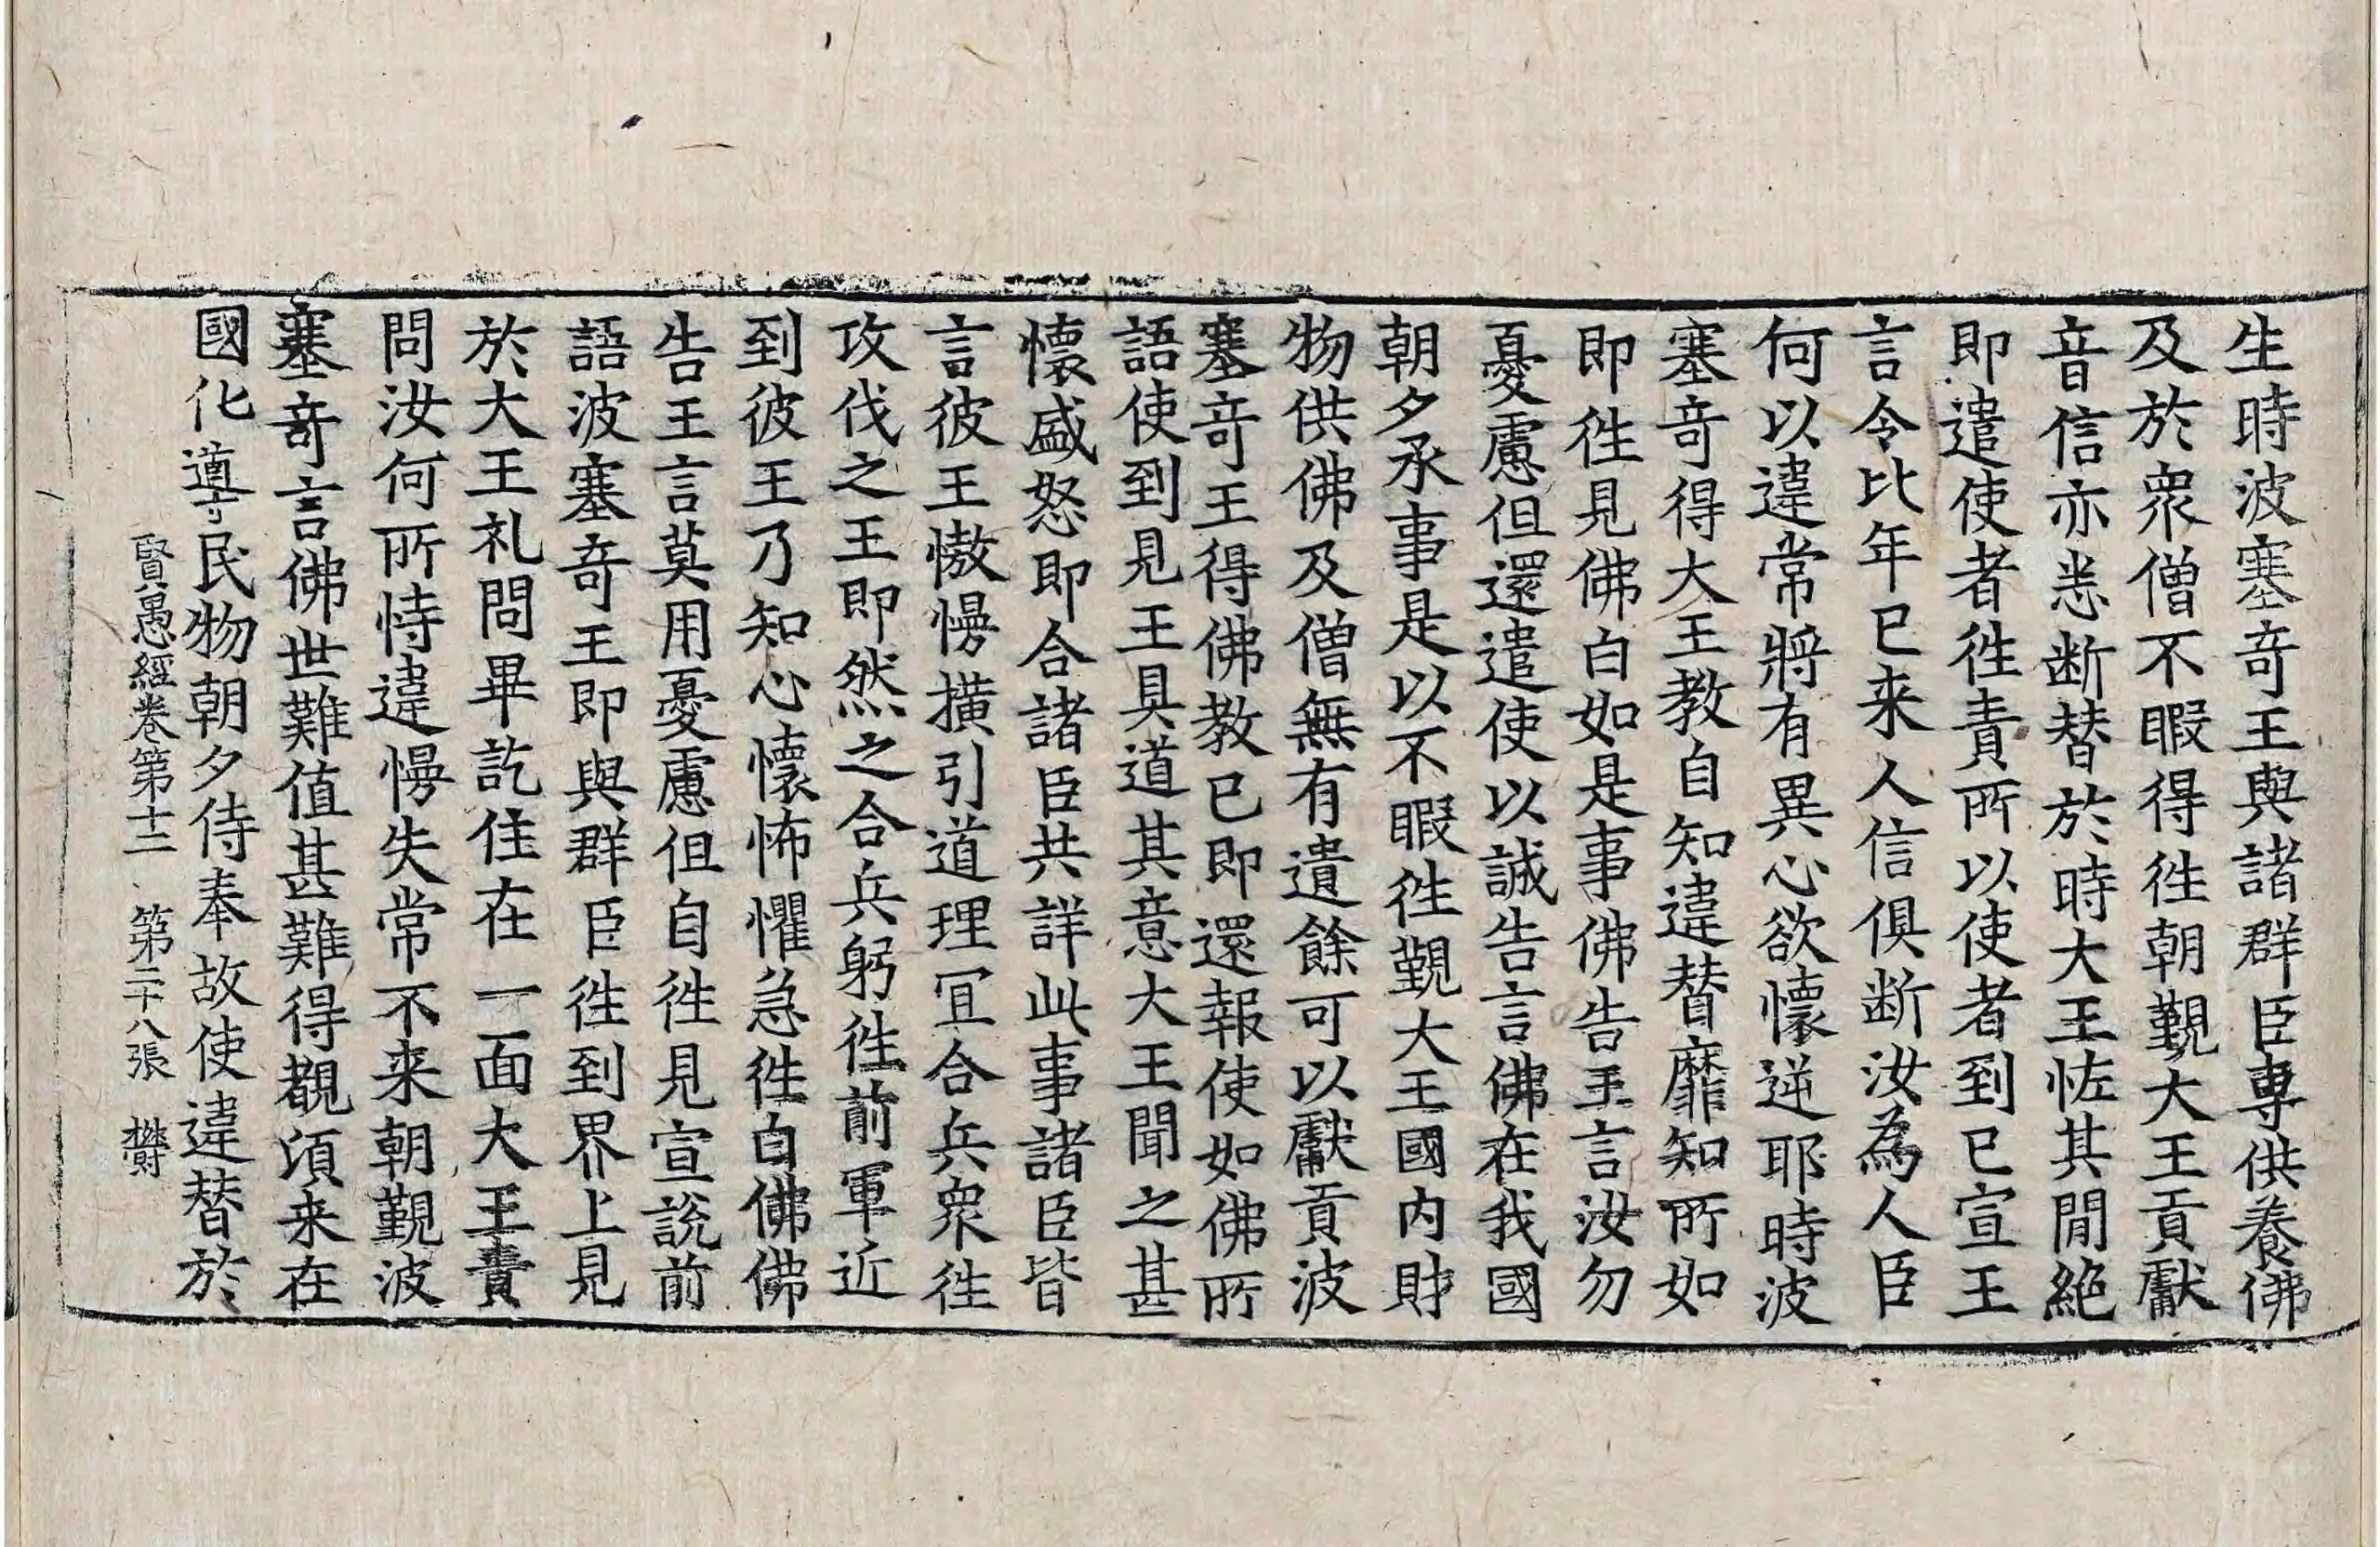 生時波塞奇王與諸群臣專供養佛
及於衆僧不暇得徃朝覲大王貢獻
音信亦恙断替於時大王恠其閒絶
即遣使者徃責所以使者到已宣王
言令比年已来人信俱断汝為人臣
何以違常將有異心欲懷逆耶時波
塞奇得大王教自知違替靡知所如
即徃見佛白如是事佛告王言汝勿
憂慮但還遣使以誠告言佛在我國
朝夕承事是以不暇徃覲大王國内財
物供佛及僧無有遺餘可以獻貢波
塞奇王得佛教已即還報使如佛所
語使到見王具道其意大王聞之甚
懷盛怒即合諸臣共詳此事諸臣皆
言彼王慠慢撗引道理冝合兵衆徃
攻伐之王即然之合兵躬徃前軍近
到彼王乃知心懷怖懼急徃白佛佛
告王言莫用憂慮但自徃見宣說前
語波塞奇王即與群臣徃到界上見
於大王礼問畢訖住在一面大王責
問汝何所恃違慢失常不来朝覲波
塞奇言佛世難值甚難得覩湏来在
國化導民物朝夕侍奉故使違替於
賢愚經卷第十二 第二十八張 欝